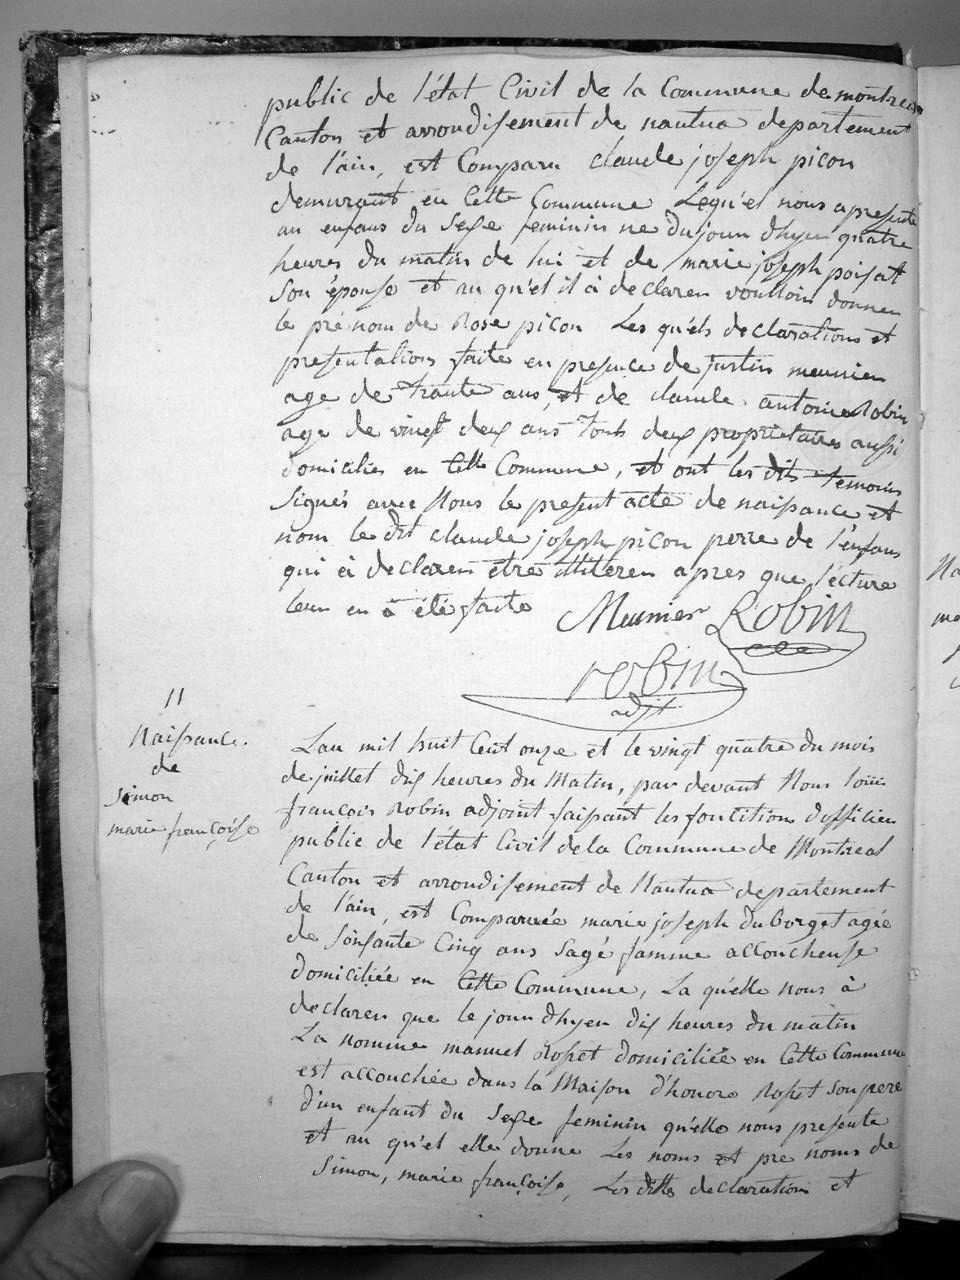 public de l'état Civil de la Commune de montreal
Canton et arrondisement de nantua departement
de l'ain, est Comparu claude joseph picon
demurant en Cette Commune Lequ'el nous a presente
un enfans du Sexe feminin ne du jour d'hyer quatre
heures du matin de lui et de marie joseph poisat
Son épouse et au qu'el il à declarer voulloir donner
le prénom de Rose picon Les qu'els declarations et
presentations faite en presence de Justin meunier
age de trante ans, et de claude antoine Robin
age de vingt deux ans touts deux proprietaires aussi
domicilies en Cette Commune, et ont les dits temoins
Signés avec Nous le present acte de naissance et
nom le dit claude joseph picon perre de l'enfans
qui à declarer être illiteren apres que lécture
leur en à été faite Meunier Robin
robin
adjt
11
Naissance
de
Simon
marie françoise
L'an mil huit Cent onze et le vingt quatre du mois
de juillet dix heures du Matin, par devant Nous Loüis
françois Robin adjoint faisant les fonctitions d'officier
public de l'état Civil de la Commune de Montreal
Canton et arrondisement de Nantua departement
de l'ain, est Comparuée marie joseph Duborget agée
de Soinsante Cinq ans Sage famme accoucheuse
domiciliée en Cette Commune, La qu'elle nous à
declarer que le jour d'hyer dix heures du matin
La nomme manuel Rosset domiciliée en Cette Commune
est accouchée dans la Maison d'honore Rosset Son pere
d'un enfant du Sexe feminin qu'elle nous presente
et au qu'el elle donne Les noms et pre noms de
Simon, marie françoise, Les dittes declarations et